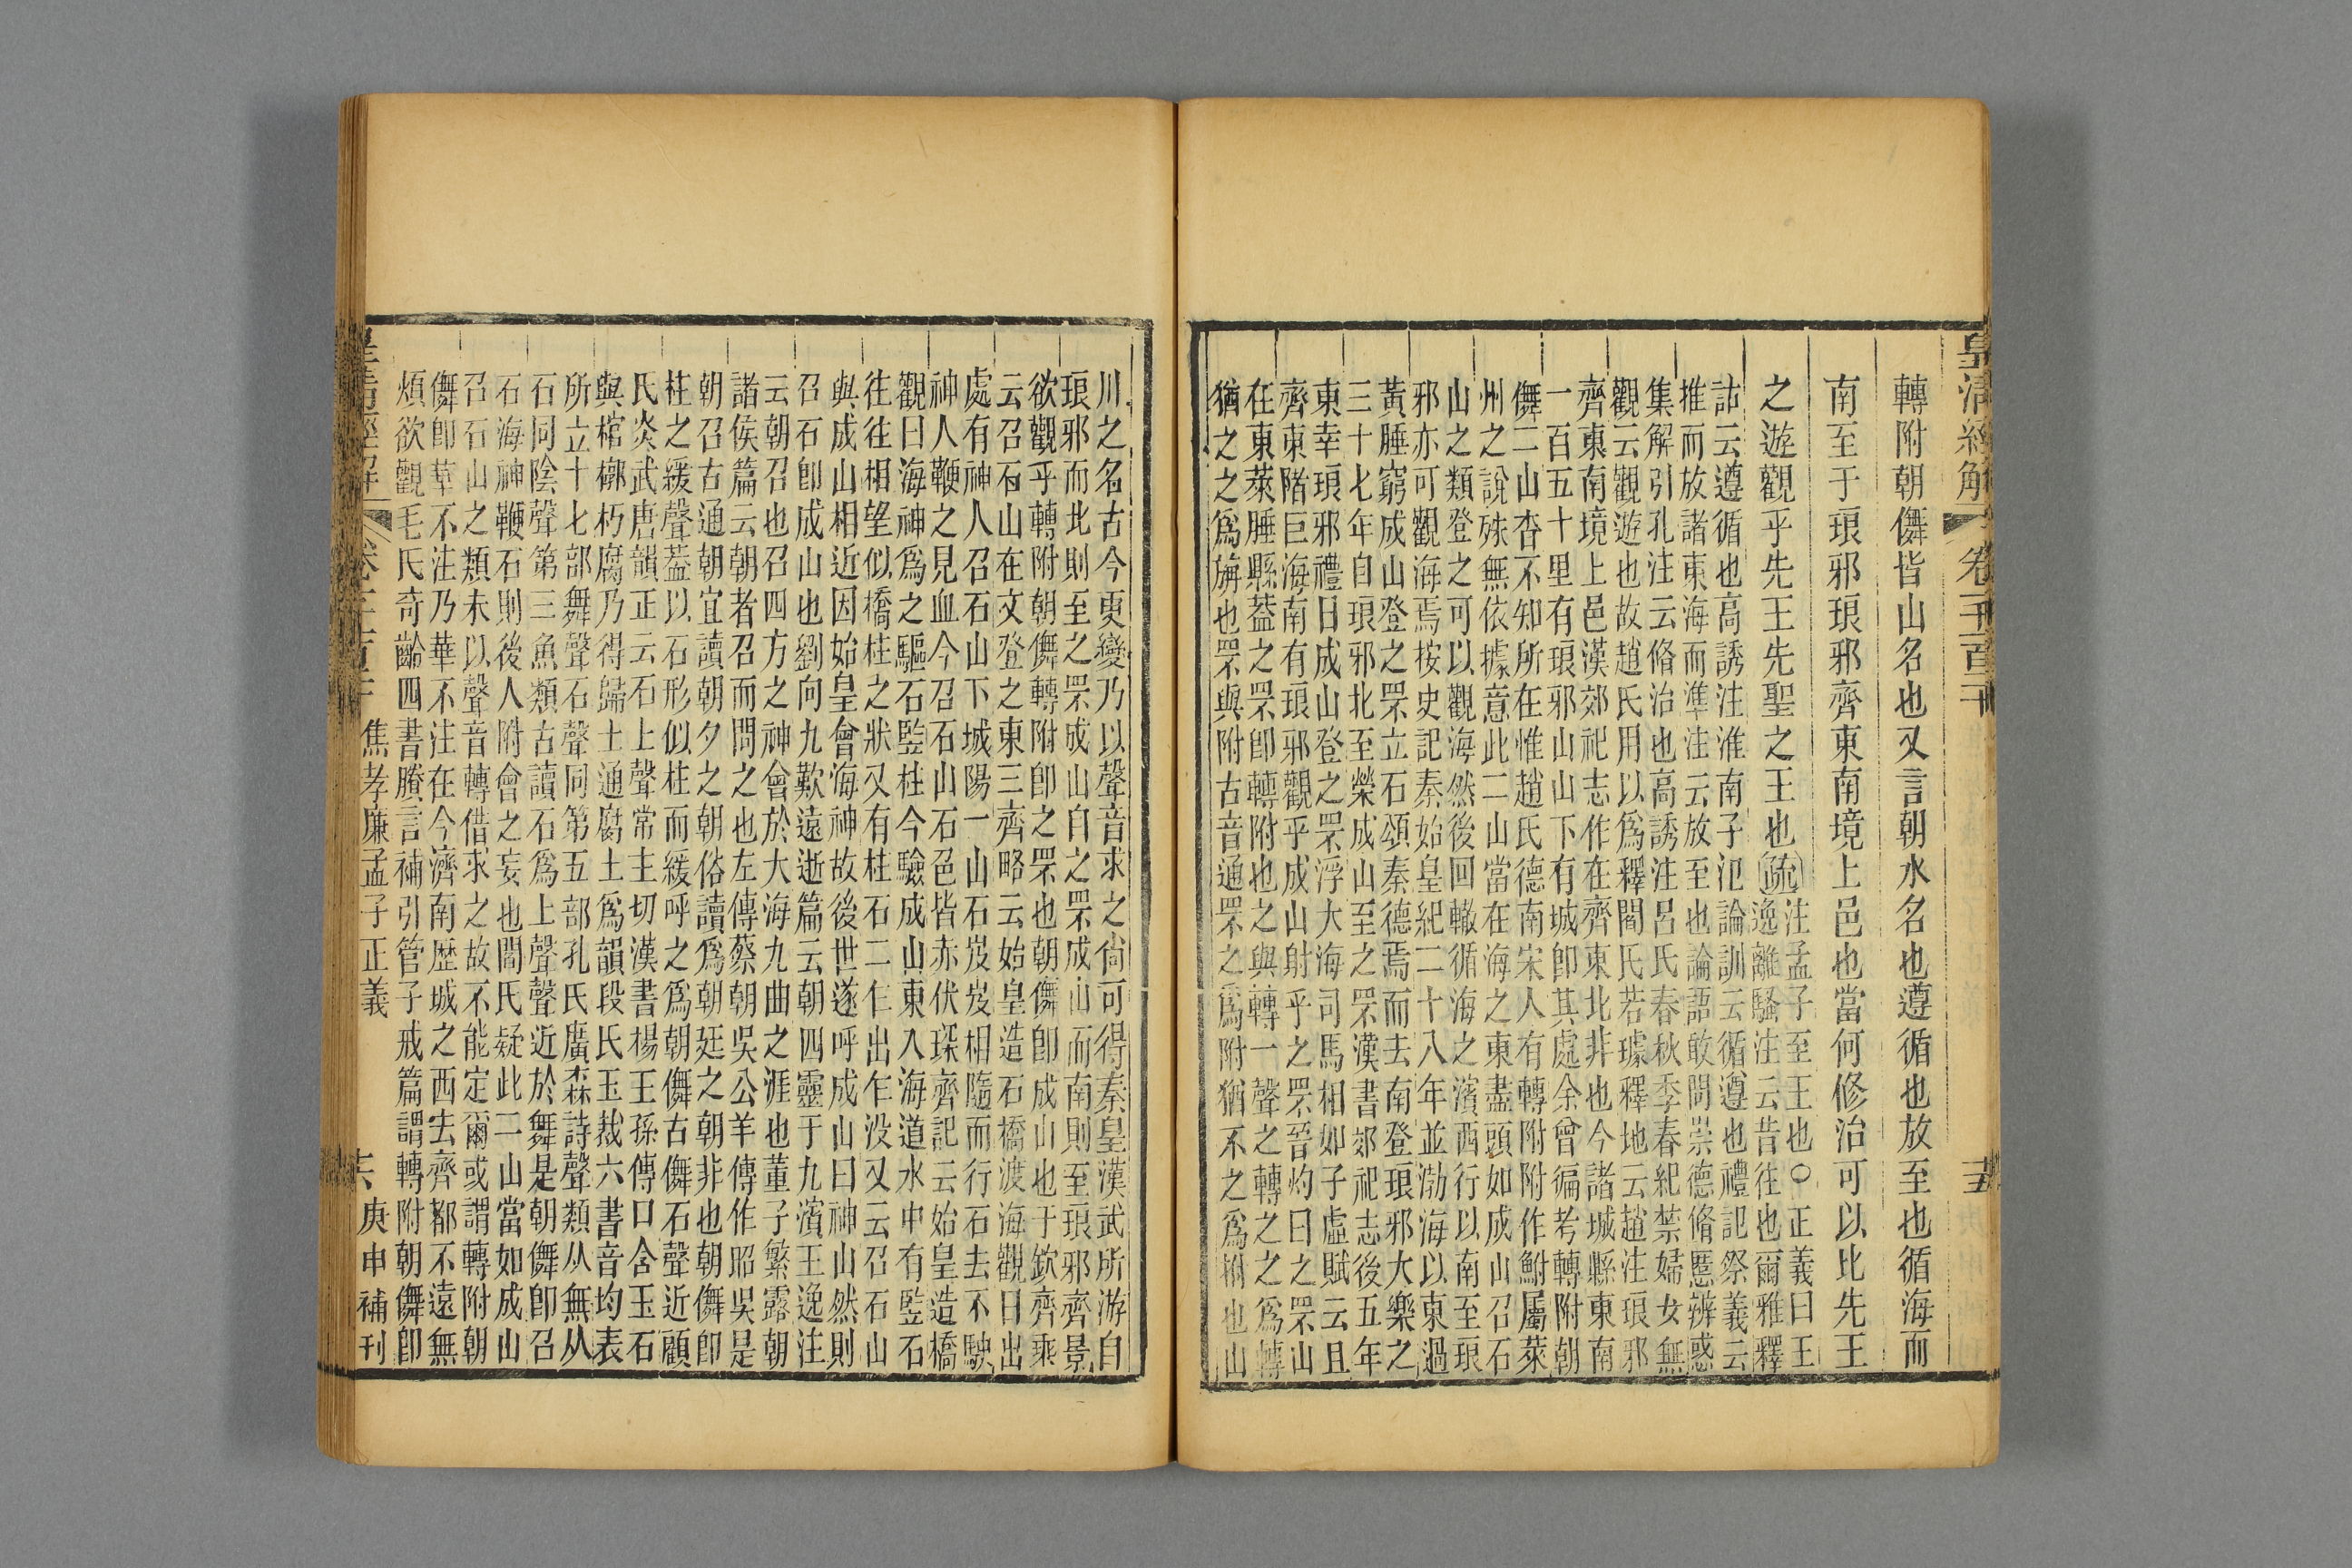 皇清經解 卷一千百二十 十五
轉附朝儛皆山名也又言朝水名也遵循也放至也循海而
南至于琅邪琅邪齊東南境上邑也當何修治可以比先王
之遊觀乎先王先聖之王也疏
注孟子至王也○正義曰王
逸離騷注云昔往也爾雅釋
詁云遵循也高誘注淮南子氾論訓云循遵也禮記祭義云
推而放諸東海而準注云放至也論語敢問崇德脩慝辨惑
集解引孔注云脩治也高誘注呂氏春秋季春紀禁婦女無
觀云觀遊也故趙氏用以爲釋閻氏若璩釋地云趙注琅邪
齊東南境上邑漢郊祀志作在齊東北非也今諸城縣東南
一百五十里有琅邪山山下有城卽其處余曾徧考轉附朝
儛二山杳不知所在惟趙氏德南宋人有轉附附作鮒屬萊
州之說殊無依據意此二山當在海之東盡頭如成山召石
山之類登之可以觀海然後回轍循海之濱西行以南至琅
邪亦可觀海焉按史記秦始皇紀二十八年並渤海以東過
黃腄窮成山登之罘立石頌秦德焉而去南登琅邪大樂之
三十七年自琅邪北至榮成山至之罘漢書郊祀志後五年
東幸琅邪禮日成山登之罘浮大海司馬相如子虛賦云且
齊東陼巨海南有琅邪觀乎成山射乎之罘晉灼曰之罘山
在東萊腄縣葢之罘卽轉附也之與轉一聲之轉之之爲轉
猶之之爲旃也罘與附古音通罘之爲附猶不之爲柎也山
川之名古今更變乃以聲音求之尙可得秦皇漢武所游自
琅邪而北則至之罘成山自之罘成山而南則至琅邪齊景
欲觀乎轉附朝儛轉附卽之罘也朝儛卽成山也于欽齊乘
云召石山在文登之東三齊略云始皇造石橋渡海觀日出
處有神人召石山下城陽一山石岌岌相隨而行石去不駛
神人鞭之見血今召石山石色皆赤伏琛齊記云始皇造橋
觀日海神爲之驅石豎柱今驗成山東入海道水中有豎石
往往相望似橋柱之狀又有柱石二乍出乍沒又云召石山
與成山相近因始皇會海神故後世遂呼成山曰神山然則
召石卽成山也劉向九歎遠逝篇云朝四靈于九濱王逸注
云朝召也召四方之神會於大海九曲之涯也董子繁露朝
諸侯篇云朝者召而問之也左傳蔡朝吳公羊傳作昭吳是
朝召古通朝宜讀朝夕之朝俗讀爲朝廷之朝非也朝儛卽
柱之緩聲葢以石形似柱而緩呼之爲朝儛古儛石聲近顧
氏炎武唐韻正云石上聲常主切漢書楊王孫傳口含玉石
與棺槨朽腐乃得歸土通腐土爲韻段氏玉裁六書音均表
所立十七部舞聲石聲同第五部孔氏廣森詩聲類从無从
石同陰聲第三魚類古讀石爲上聲聲近於舞是朝儛卽召
石海神鞭石則後人附會之妄也閻氏疑此二山當如成山
召石山之類未以聲音轉借求之故不能定爾或謂轉附朝
儛卽華不注乃華不注在今濟南歴城之西去齊都不遠無
煩欲觀毛氏奇齡四書賸言補引管子戒篇謂轉附朝儛卽
皇清經解 卷一千百二十 焦孝廉孟子正義 十六 庚申補刊